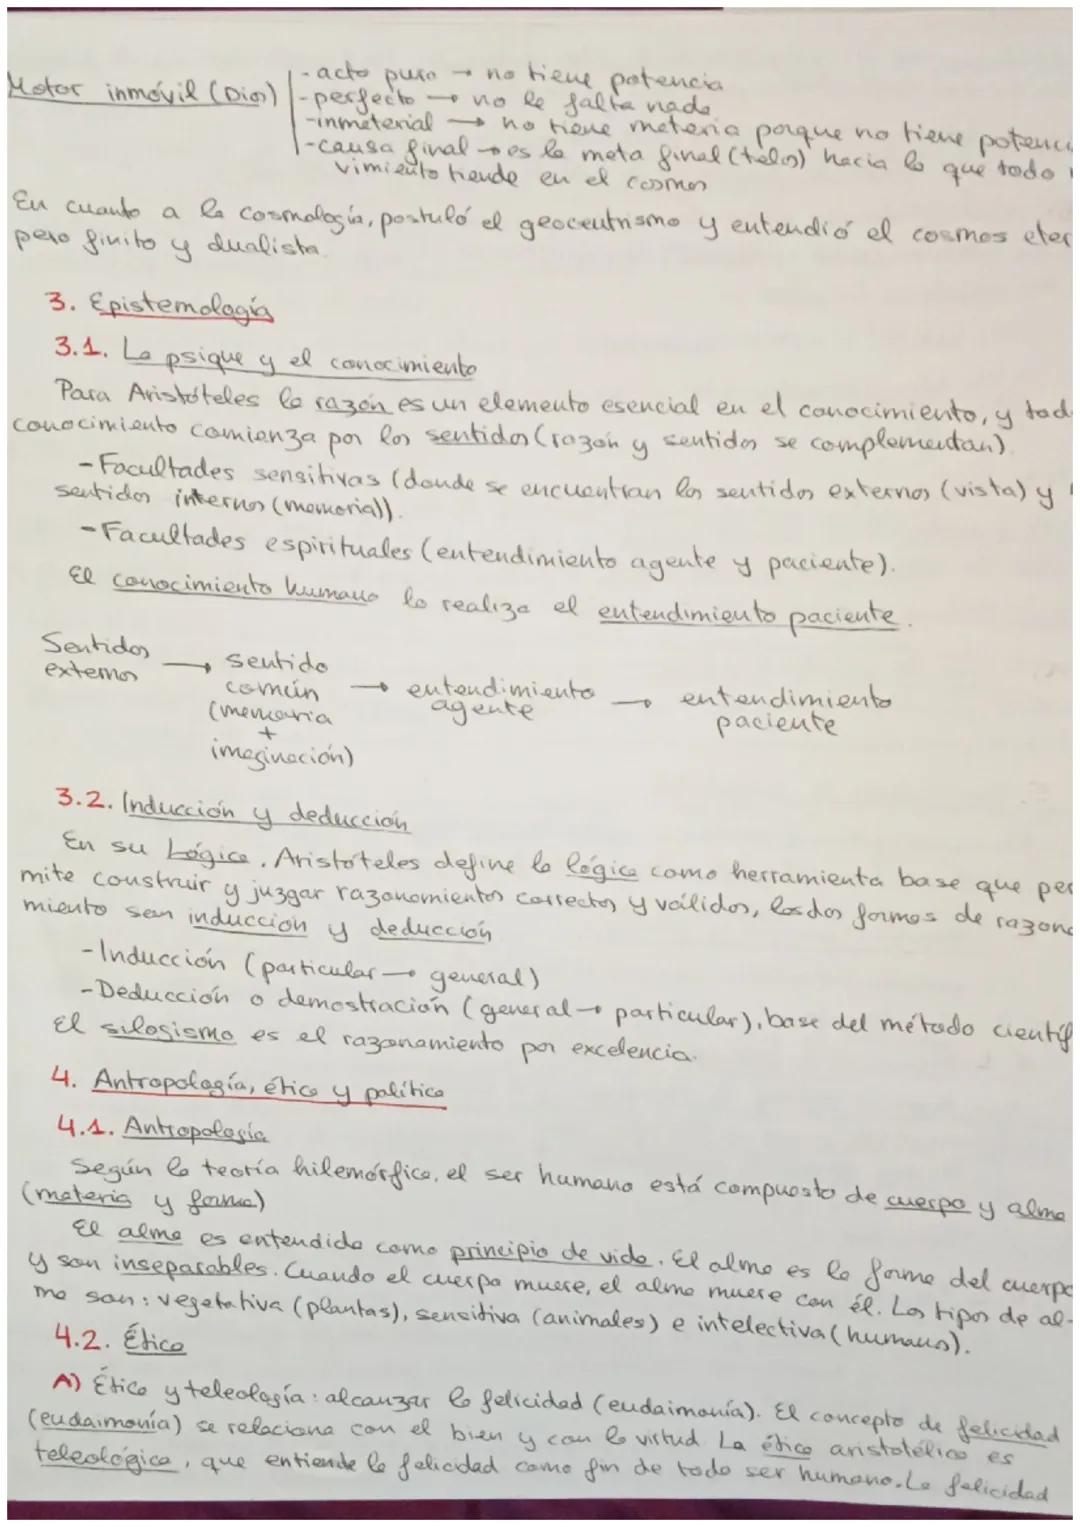 Motor inmóvil (Dios) - acto puro → no tiene potencia
- perfecto → no le falta nada
- inmaterial → no tiene materia porque no tiene potenci
- causa final → es la meta final (telos) hacia la que todo
vimiento tiende en el cosmos
En cuanto a la cosmología, postuló el geocentrismo y entendió el cosmos eter
pero finito y dualista.
3. Epistemología
3.1. La psique y el conocimiento
Para Aristóteles la razón es un elemento esencial en el conocimiento, y tod
conocimiento comienza por los sentidos (razón y sentidos se complementan).
- Facultades sensitivas (donde se encuentran los sentidos externos (vista) y
sentidos internos (memoria)).
- Facultades espirituales (entendimiento agente y paciente).
El conocimiento humano lo realiza el entendimiento paciente.
Sentidos externos → sentido común (memoria + imaginación) → entendimiento agente → entendimiento paciente
3.2. Inducción y deducción
En su Lógica, Aristóteles define la lógica como herramienta base que per
mite construir y juzgar razonamientos correctos y válidos, las dos formas de razona
miento son inducción y deducción
- Inducción (particular → general)
- Deducción o demostración (general → particular), base del método científ
El silogismo es el razonamiento por excelencia.
4. Antropología, ética y política
4.1. Antropología
Según la teoría hilemórfica, el ser humano está compuesto de cuerpo y alma
(materia y forma)
El alma es entendida como principio de vida. El alma es la forma del cuerpo
y son inseparables. Cuando el cuerpo muere, el alma muere con él. Los tipos de al-
ma son: vegetativa (plantas), sensitiva (animales) e intelectiva (humanos).
4.2. Ética
A) Ética y teleología: alcanzar la felicidad (eudaimonía). El concepto de felicidad
(eudaimonía) se relaciona con el bien y con la virtud. La ética aristotélica es
teleológica, que entiende la felicidad como fin de todo ser humano. La felicidad